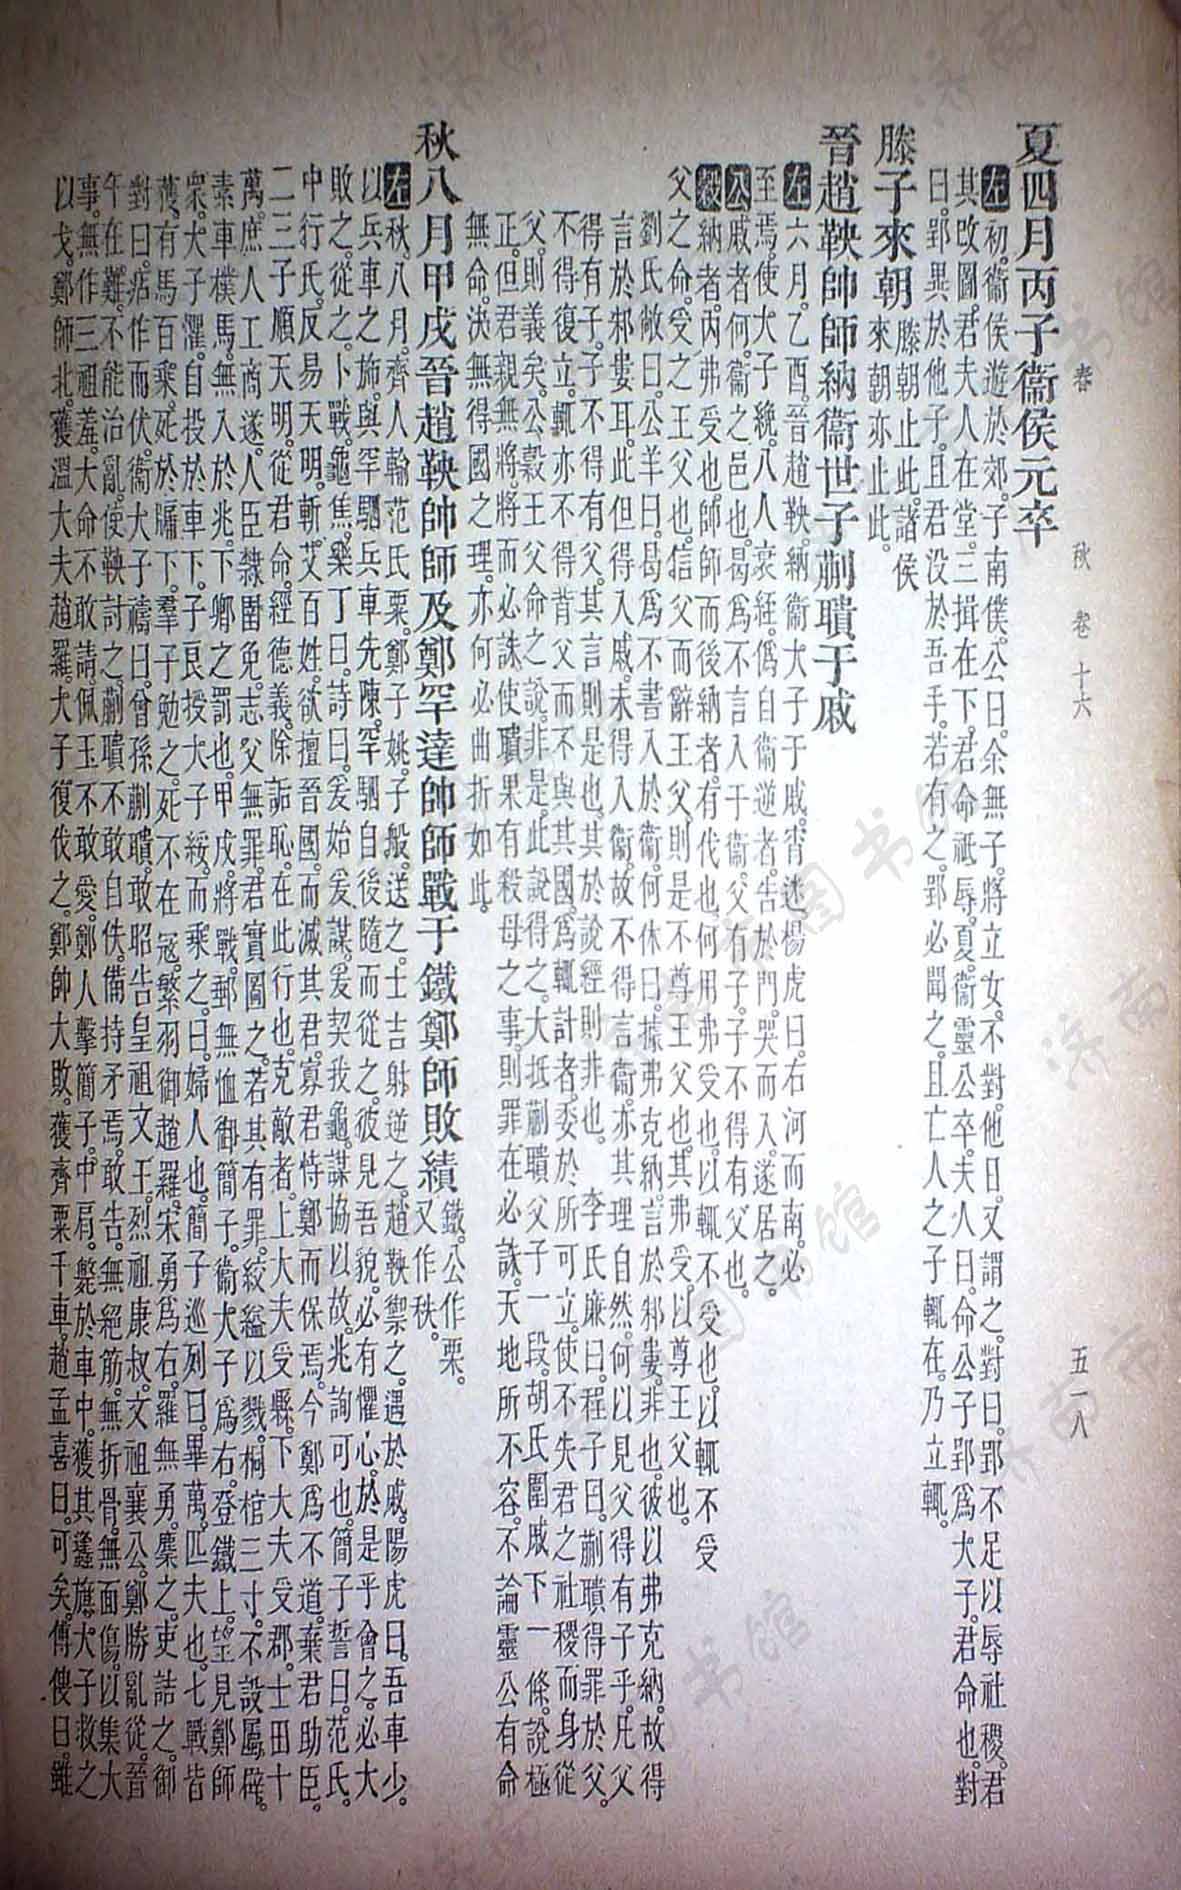 春秋 卷十六 五一八
夏四月丙子衞侯元卒
左初衞侯遊於郊子南僕公曰余無子將立女不對他日又謂之對曰郢不足以辱社稷君
其改圖君夫人在堂三揖在下君命祇辱夏衞靈公卒夫人曰命公子郢爲大子君命也對
曰郢異於他子且君没於吾手若有之郢必聞之且亡人之子輒在乃立輒
滕子來朝滕朝止此諸侯
來朝亦止此
晉趙鞅帥師納衞世子蒯聵于戚
左六月乙酉晉趙鞅納衞大子于戚宵迷楊虎曰右河而南必
至焉使大子絻八人衰絰僞自衞逆者告於門哭而入遂居之
公戚者何衞之邑也曷爲不言入于衞父有子子不得有父也
穀納者内弗受也帥師而後納者有伐也何用弗受也以輒不受也以輒不受
父之命受之王父也信父而辭王父則是不尊王父也其弗受以尊王父也
劉氏敞曰公羊曰曷爲不書入於衞何休曰據弗克納言於邾婁非也彼以弗克納故得
言於邾婁耳此但得入戚未得入衞故不得言衞亦其理自然何以見父得有子乎凡父
得有子子不得有父其言則是也其於說經則非也 李氏廉曰程子曰蒯聵得罪於父
不得復立輒亦不得背父而不與其國爲輒計者委於所可立使不失君之社稷而身從
父則義矣公穀王父命之說非是此說得之大抵蒯聵父子一段胡氏圍戚下一條說極
正但君親無將將而必誅使聵果有殺母之事則罪在必誅天地所不容不論靈公有命
無命決無得國之理亦何必曲折如此
秋八月甲戌晉趙鞅帥師及鄭罕達帥師戰于鐵鄭師敗績鐵公作栗
又作秩
左秋八月齊人輸范氏粟鄭子姚子般送之士吉射逆之趙鞅禦之遇於戚陽虎曰吾車少
以兵車之旆與罕駟兵車先陳罕駟自後隨而從之彼見吾貌必有懼心於是乎會之必大
敗之從之卜戰龜焦樂丁曰詩曰爰始爰謀爰契我龜謀協以故兆詢可也簡子誓曰范氏
中行氏反易天明斬艾百姓欲擅晉國而滅其君寡君恃鄭而保焉今鄭爲不道棄君助臣
二三子順天明從君命經德義除詬恥在此行也克敵者上大夫受縣下大夫受郡士田十
萬庶人工商遂人臣隸圉免志父無罪君實圖之若其有罪絞縊以戮桐棺三寸不設屬辟
素車樸馬無入於兆下卿之罰也甲戌將戰郵無恤御簡子衞大子爲右登鐵上望見鄭師
衆大子懼自投於車下子良授大子綏而乘之曰婦人也簡子巡列曰畢萬匹夫也七戰皆
獲有馬百乘死於牖下羣子勉之死不在寇繁羽御趙羅宋勇爲右羅無勇麇之吏詰之御
對曰痁作而伏衞大子禱曰曾孫蒯聵敢昭告皇祖文王烈祖康叔文祖襄公鄭勝亂從晉
午在難不能治亂使鞅討之蒯聵不敢自佚備持矛焉敢告無絕筋無折骨無面傷以集大
事無作三祖羞大命不敢請佩玉不敢愛鄭人擊簡子中肩斃於車中獲其蠭旗大子救之
以戈鄭師北獲溫大夫趙羅大子復伐之鄭師大敗獲齊粟千車趙孟喜曰可矣傅傁曰雖